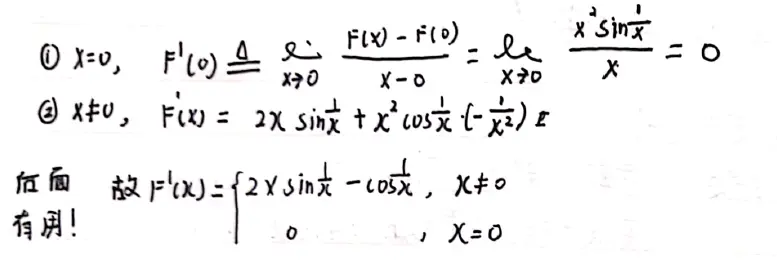 ① x=0, F'(0) ≜ lim_{x→0} \frac{F(x)-F(0)}{x-0} = lim_{x→0} \frac{x^2 sin\frac{1}{x}}{x} = 0
② x≠0, F'(x) = 2x sin\frac{1}{x} + x^2 cos\frac{1}{x} · (-\frac{1}{x^2})
后面有用! 故 F'(x) = { 2x sin\frac{1}{x} - cos\frac{1}{x}, x≠0
0, x=0